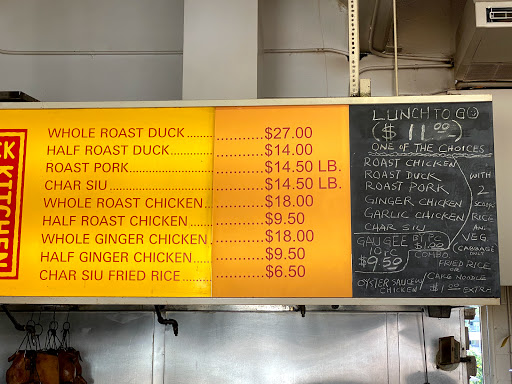 CK KITCHEN
WHOLE ROAST DUCK.......... $27.00
HALF ROAST DUCK.......... $14.00
ROAST PORK.......... $14.50 LB.
CHAR SIU.......... $14.50 LB.
WHOLE ROAST CHICKEN.......... $18.00
HALF ROAST CHICKEN.......... $9.50
WHOLE GINGER CHICKEN.......... $18.00
HALF GINGER CHICKEN.......... $9.50
CHAR SIU FRIED RICE.......... $6.50
LUNCH TO GO
($11.00)
ONE OF THE CHOICES
ROAST CHICKEN
ROAST DUCK
ROAST PORK
GINGER CHICKEN
GARLIC CHICKEN
CHAR SIU
WITH
2
SCOOPS
RICE
AND
VEG.
CABBAGE
ONLY
GAU GEE
10 PC
$9.50
COMBO
FRIED RICE
OR
CAKE NOODLE
$1.00 EXTRA
OYSTER SAUCE
CHICKEN